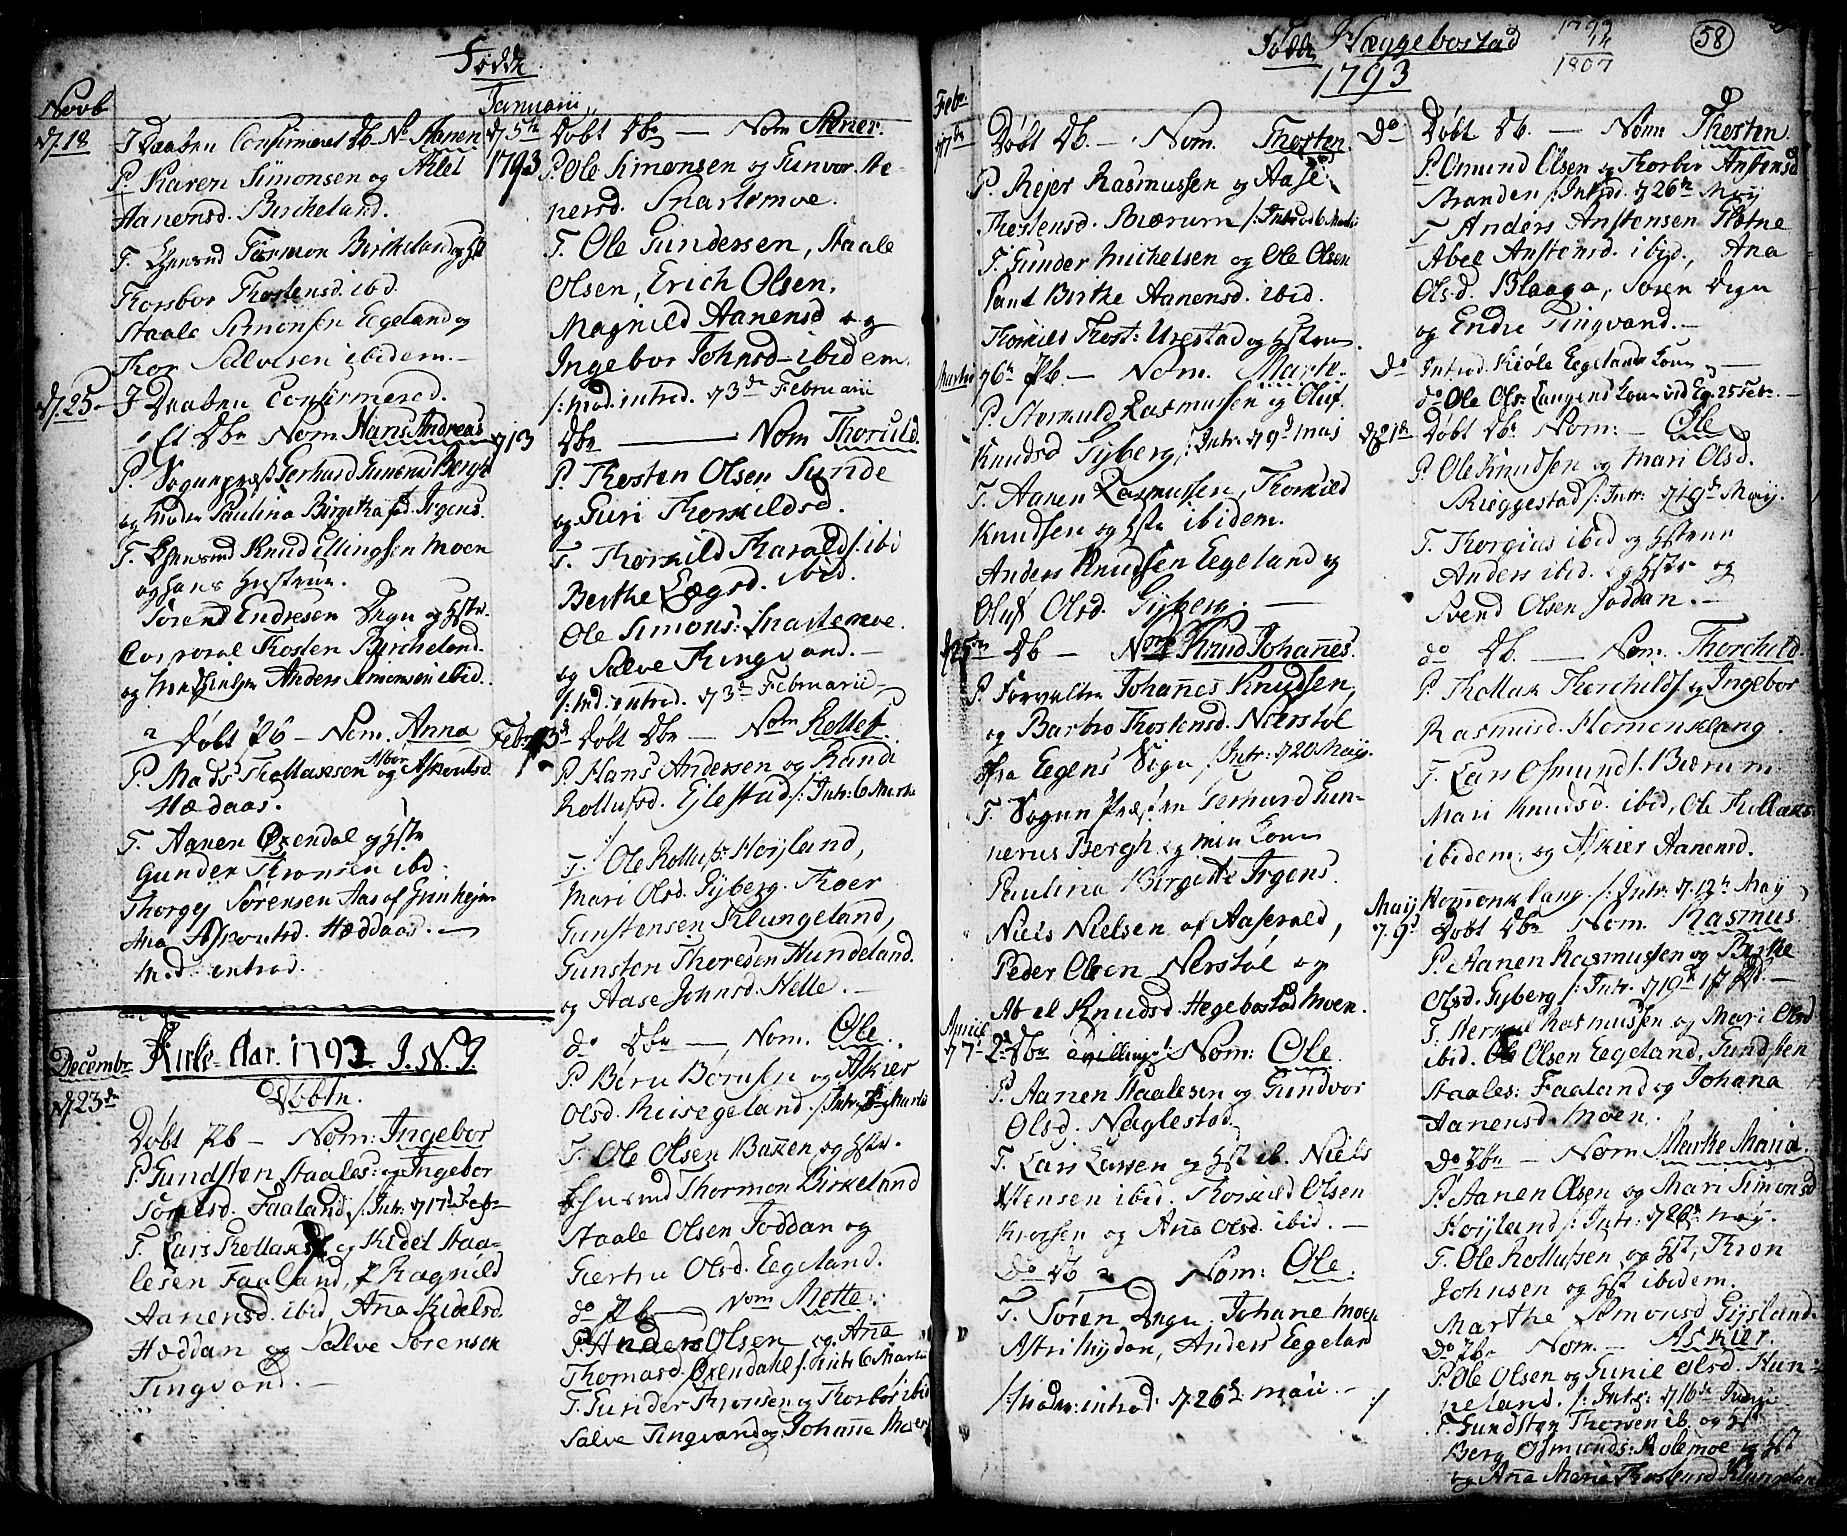 Fødde
Novb
d. 18 J Daaben Confirmeret Db. N. Aanen
P. Karen Simonsen og Ahlet
Aanensd. Bircheland.
T. Tormon Birkeland og Hst
Thorbor Thostensd. ibd.
Staale Simonsen Eegeland og
Thor Salvesen ibidem.
d. 25. J Daaben Confirmered.
1 Et Db Nom. Hans Andreas
P. Sognepræst Gerhard Bergh
og Paulina Birgitha Irgens.
T. Knud Ellingsen Moen
og hans Hustrue.
Sørend Endresen Degn og Hst.
Corporal Thosten Bircheland.
og Anders Simonsen ibid.
2 Døbt Pb - Nom. Anna
P. Mads Thollaksen og Asbor Askoutsd.
Hædaas.
T. Aanen Øxendal og Hst
Gunder Thronsen ibd.
Thorgej Sørensen Aas af Grinhejm
Ana Askoutsd. Hæddaas.
Mod. introd.
Kirke-Aar. 1793 I. N. J.
Døbte.
Decembr.
d. 23
Døbt Pb - Nom: Ingebor
P. Gundsten Staales: og Ingebor
Torelsd. Faaland /: Intr: 17 Febr
T. Lars Thollaks og Kidel Staa-
lesen Faaland, Ragnild
Aanensd. ibid, Aña Kidelsd.
Hæddan og Salve Sørensen
Tingvand.
Januarii
d. 5
1793
Døbt Db - Nom Abner.
P. Ole Simonsen og Gunvor Ab-
nersd. Snartemoe.
T. Ole Gundersen, Staale
Olsen, Erich Olsen,
Magnild Aanensd og
Ingebor Johnsd ibidem.
/: Mod. introd. d 3 Februarii
d 13 Db - Nom Thoruld.
P. Thosten Olsen Sunde
og Guri Thorkildsd.
T. Thorkild Haralds. ibi
Berthe Lægsd. ibid.
Ole Simons: Snartemoe.
og Salve Tingvand.
/: Md. introd. d 3 Februarii
Febr 3 Døbt Db - Nom Rollef.
P. Hans Andersen og Randi
Rollufsd. Eflestad /: Intr: 6 Marti
T. Ole Rollufs: Høyland,
Mari Olsd. Gyberg. Thoer
Gunstensen Klungeland,
Gunsten Thoresen Hundeland.
og Aase Johnsd. Helle.
do Db - Nom. Ole.
P. Børu Børusen og Askier
Olsd. Reisegeland. /: Intr: Marti
T. Ole Olsen Bakken og Hst.
Thormon Birkeland
Staale Olsen Joddan og
Giertru Olsd. Eegeland.
do Pb - Nom Mette.
P. Anders Olsen og Aña
Thomasd. Øxendahl /: Intr. 6 Marti
T. Gunder Thronsen og Thorbor ibid
Salve Tingvand og Johañe Moen
Fødde Hæggebostad
1793
1799
14
1807
58
Febr
17
Døbt Db. - Nom. Thosten.
P. Rejer Rasmussen og Aase
Thostensd. Bærum /: Introd 6 Marti
T. Gunder Michelsen og Ole Olsen
samt Birthe Aanensd. ibid.
Thorkild Thost: Urestad og Hstrue.
Martii 6 Pb - Nom. Marte.
P. Stenuld Rasmussen og Oluf
Knudsd Gyberg, /: Intr: d 9 Maj
T. Aanen Rasmussen, Thorkild
Knudsen og Hst ibidem.
Anders Knudsen Eegeland og
Oluf Olsd. Gyberg.
d 25 Db - Nom Knud Johañes.
P. Forvalter Johañes Knudsen,
og Barbro Thostensd. Nerstøl
fra Eegens Sogn /: Intr: d 20 Maij.
T. Sogne Præsten Gerhard Gun-
nerus Bergh og min Kone
Paulina Birgitte Irgens.
Niels Nielsen af Aaserald,
Peder Olsen Nerstøl og
Abel Knudsd. Hegebostad Moen.
April
d 7
2 Db Tvillinger Nom: Ole
P. Aanen Staalesen og Gundvor
Olsd. Naglestad
T. Lars Larsen og Hst ib. Niels
Stensen ibid. Thorkild Olsen
Krossen og Aña Olsd. ibid.
Do Db 2 Nom: Ole.
T. Søren Degn, Johane Moen
Astri Nydan, Anders Eegeland
/: Moder: introd: d. 26 Maii. - /
Do Døbt Db. - Nom Thosten
P. Omund Olsen og Thorbor Anstensd
Branden /: Introd. d 26 Maij
T Anders Anstensen Fløtne
Abel Anstensd. ibid., Ana
Olsd. Blaaga, Søren Degn
og Endre Tingvand.
Do Introd. Kiøle Eegelands Kone
do Ole Ols: Laugens Kone 25 Febr.
d 21 Døbt Db. Nom: - Ole
P. Ole Knudsen og Mari Olsd.
Skeggestad /: Intr: d 19 Maij.
T. Thorgius ibid og Hstrue
Anders ibid. og Hst og
Svend Olsen Joddan.
do Db. - Nom. Thorchild
P. Thollak Thorchilds og Ingebor
Rasmusd. Homenklang.
T. Lars Osmunds. Bærum.
Mari Knudsd. ibid, Ole Thollaks
ibidem. og Askier Aanensd.
Homonklang /: Intr: d. 12 Maij
Maij
d. 9 Døbt Db Nom. Rasmus.
P. Aanen Rasmussen og Berthe
Olsd. Gyberg /: Intr. d 19
T. Rasmussen og Mari Olsd
ibid. Ole Olsen Eegeland, Gundsten
Staales: Faaland og Johana
Aanensd Moen.
Do Pb - Nom Marthe Maria.
P. Aanen Olsen og Mari Simonsd
Høyland /: Intr: d 26 Maj.
T. Ole Rollufsen og Hst, Thron
Johnsen og Hst ibidem.
Marthe Simonsd Gysland.
Do Pb Nom. - Askier.
P. Ole Olsen og Gunil Olsd. Hun-
neland. /: Intr: d 16 Junji
T. Gundsten Thorsen ib. og Hst
Berg Osmunds: Rolemoe og Hst
og Aña Maria Thostensd Klungeland